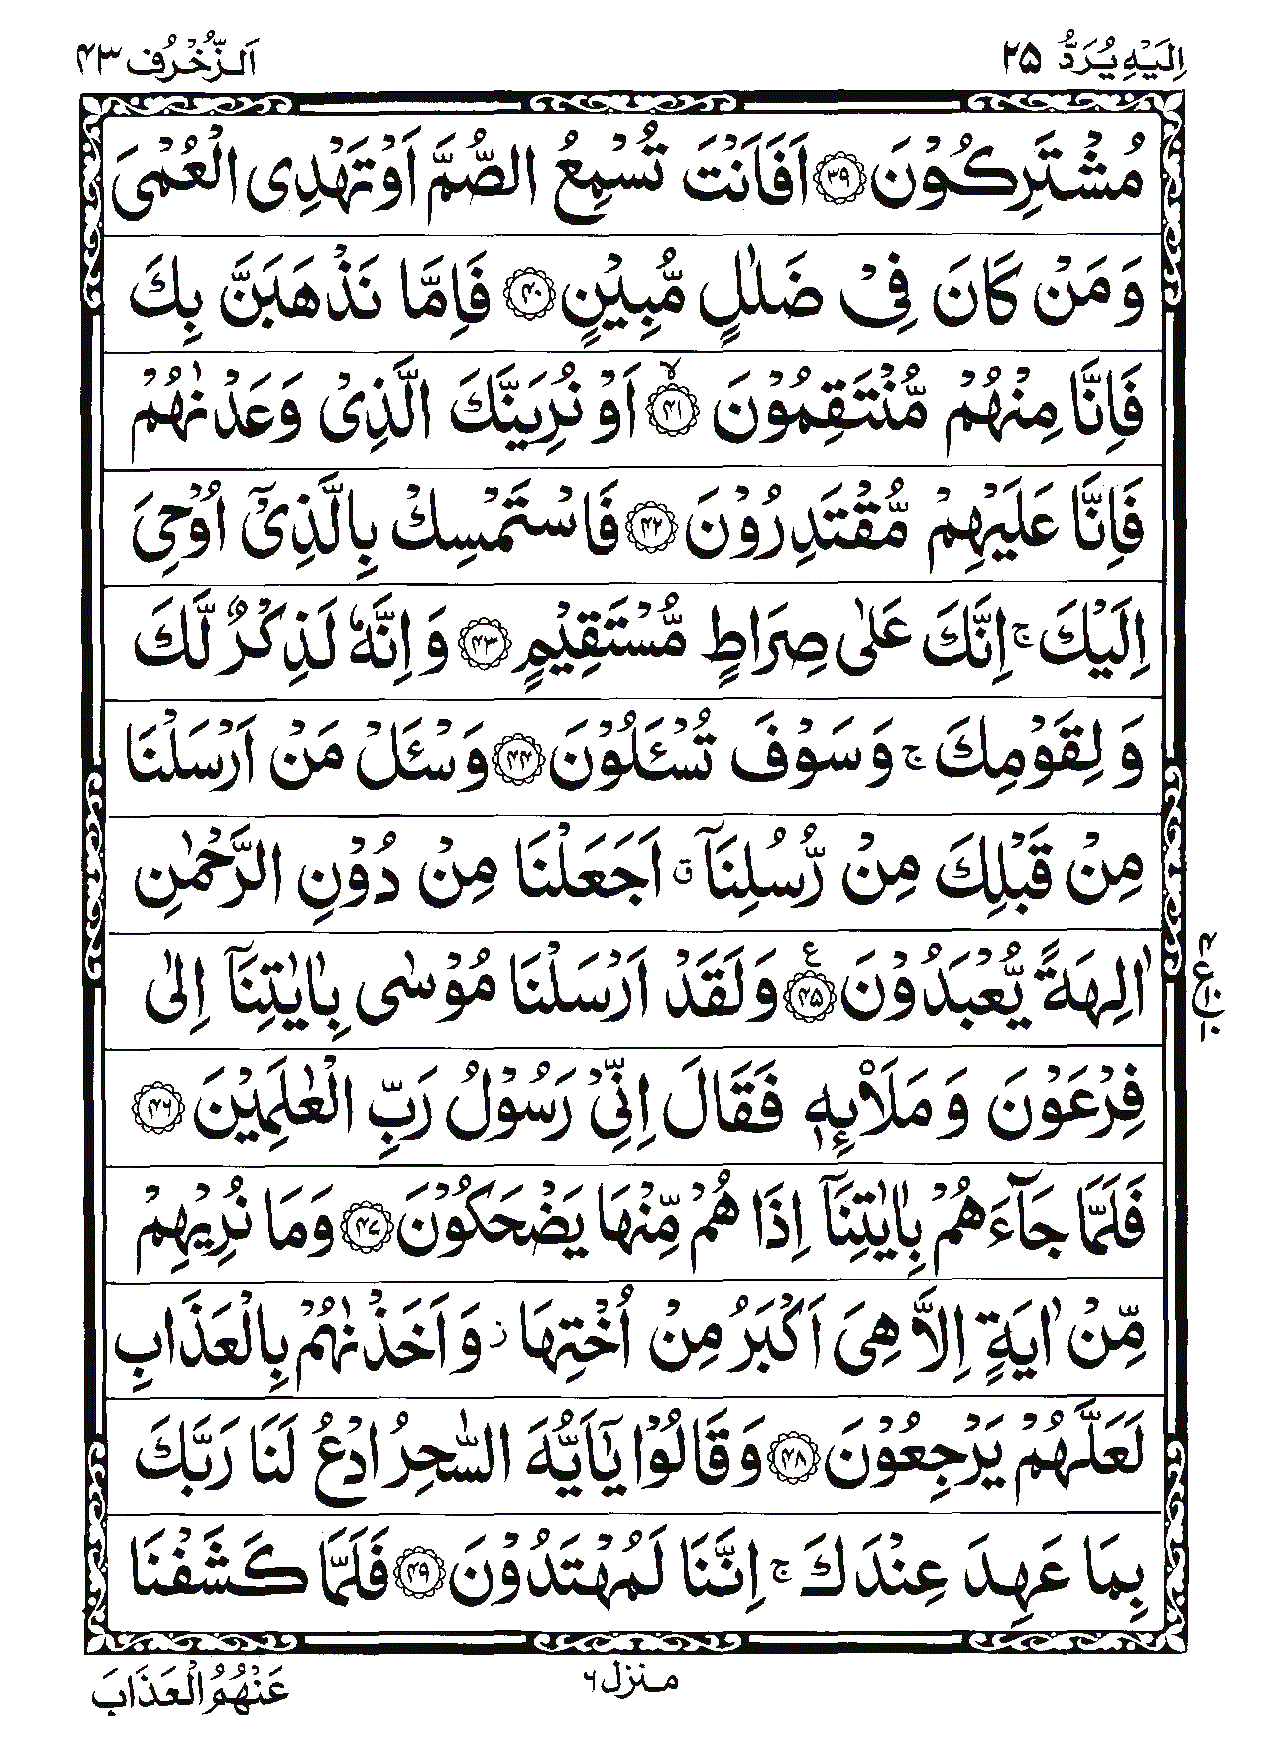 اِلَيْهِ يُرَدُّ ٢٥
اَلزُّخْرُف ٤٣
مُشْتَرِكُوْنَ ﴿٣٩﴾ اَفَاَنْتَ تُسْمِعُ الصُّمَّ اَوْ تَهْدِى الْعُمْىَ
وَ مَنْ كَانَ فِىْ ضَلٰلٍ مُّبِيْنٍ ﴿٤٠﴾ فَاِمَّا نَذْهَبَنَّ بِكَ
فَاِنَّا مِنْهُمْ مُّنْتَقِمُوْنَ ۙ﴿٤١﴾ اَوْ نُرِيَنَّكَ الَّذِىْ وَعَدْنٰهُمْ
فَاِنَّا عَلَيْهِمْ مُّقْتَدِرُوْنَ ﴿٤٢﴾ فَاسْتَمْسِكْ بِالَّذِىْۤ اُوْحِىَ
اِلَيْكَ ۚ اِنَّكَ عَلٰى صِرَاطٍ مُّسْتَقِيْمٍ ﴿٤٣﴾ وَ اِنَّهٗ لَذِكْرٌ لَّكَ
وَ لِقَوْمِكَ ۚ وَ سَوْفَ تُسْـَٔلُوْنَ ﴿٤٤﴾ وَسْـَٔلْ مَنْ اَرْسَلْنَا
مِنْ قَبْلِكَ مِنْ رُّسُلِنَاۤ ق اَجَعَلْنَا مِنْ دُوْنِ الرَّحْمٰنِ
اٰلِهَةً يُّعْبَدُوْنَ ﴿٤٥﴾ع وَلَقَدْ اَرْسَلْنَا مُوْسٰى بِاٰيٰتِنَاۤ اِلٰى
فِرْعَوْنَ وَ مَلَا۟ئِهٖ فَقَالَ اِنِّىْ رَسُوْلُ رَبِّ الْعٰلَمِيْنَ ﴿٤٦﴾
فَلَمَّا جَآءَهُمْ بِاٰيٰتِنَاۤ اِذَا هُمْ مِّنْهَا يَضْحَكُوْنَ ﴿٤٧﴾ وَمَا نُرِيْهِمْ
مِّنْ اٰيَةٍ اِلَّا هِىَ اَكْبَرُ مِنْ اُخْتِهَا ز وَ اَخَذْنٰهُمْ بِالْعَذَابِ
لَعَلَّهُمْ يَرْجِعُوْنَ ﴿٤٨﴾ وَ قَالُوْا يٰۤاَيُّهَ السّٰحِرُ ادْعُ لَنَا رَبَّكَ
بِمَا عَهِدَ عِنْدَكَ ۚ اِنَّنَا لَمُهْتَدُوْنَ ﴿٤٩﴾ فَلَمَّا كَشَفْنَا
منزل ٦
عَنْهُمُ الْعَذَابَ